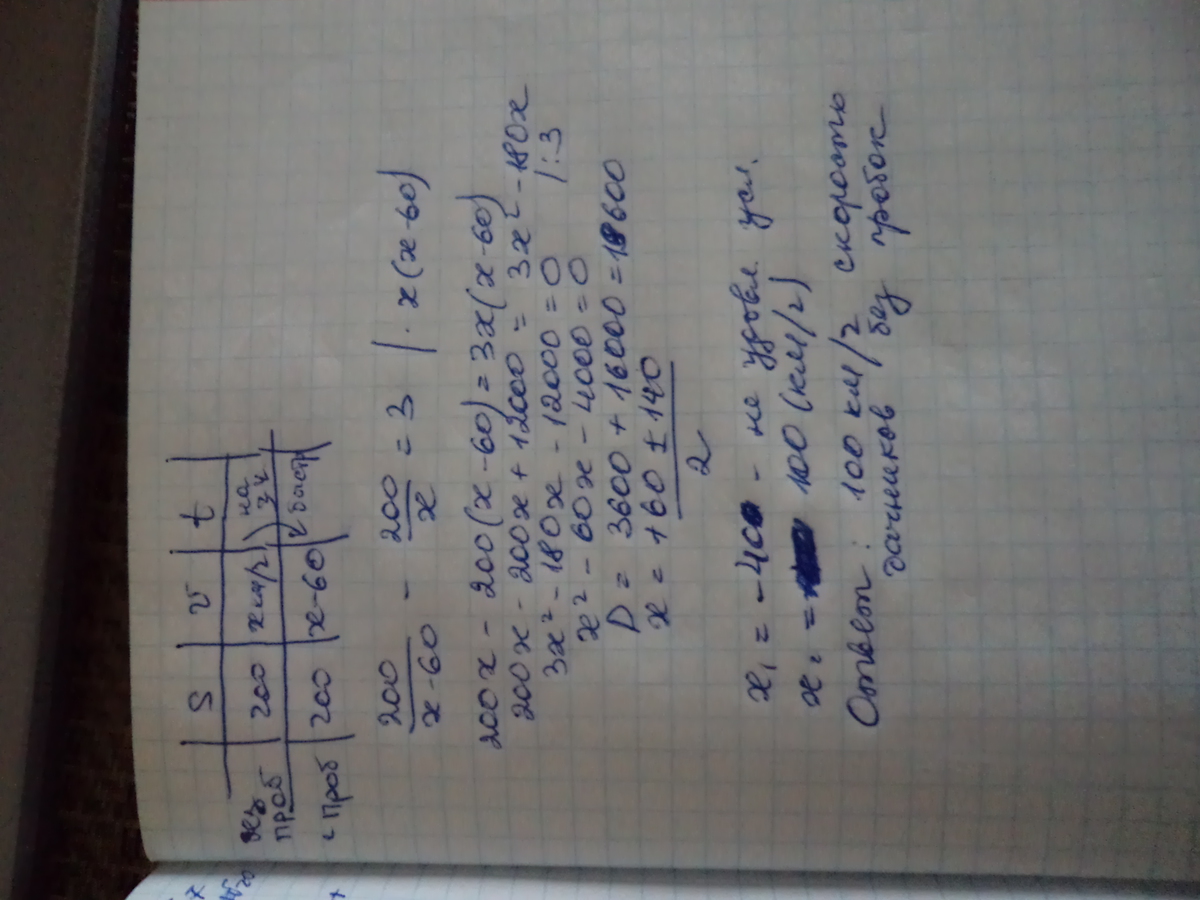 S | v | t
без проб | 200 | x км/ч | на 3 ч
с проб | 200 | x-60 | быстр
200/(x-60) - 200/x = 3 | · x(x-60)
200x - 200(x-60) = 3x(x-60)
200x - 200x + 12000 = 3x² - 180x
3x² - 180x - 12000 = 0 |:3
x² - 60x - 4000 = 0
D = 3600 + 16000 = 19600
x = +60 ± 140
2
x₁ = -40 - не удовл. усл.
x₂ = 100 (км/ч)
Ответ: 100 км/ч скорость
дачников без пробок